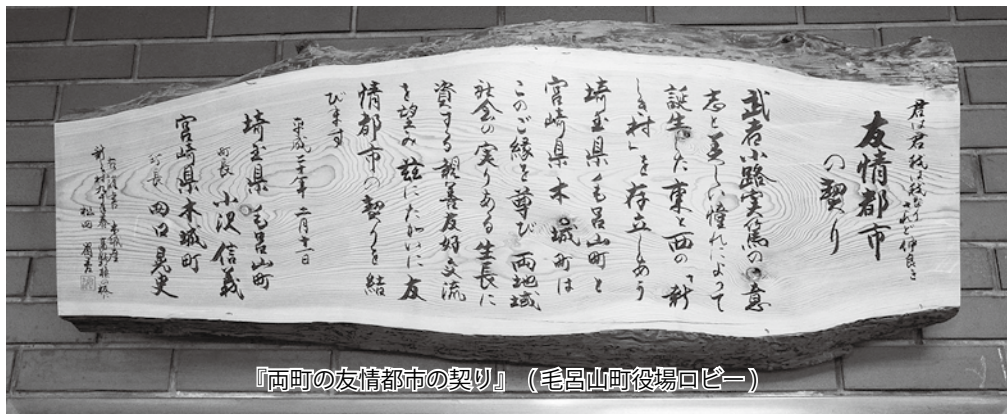 君は君 我は我なり
されど仲良き
友情都市
の契り
武者小路実篤の意
志と美しい憧れによって
誕生した東と西の「新
しき村」を存立しあう
埼玉県毛呂山町と
宮崎県木城町は
このご縁を尊び両地域
社会の実りある生長に
資する親善友好交流
を望み茲にたがいに友
情都市の契りを結
びます
平成二十一年二月十一日
埼玉県毛呂山町
町長 小沢信義
宮崎県木城町
町長 田口晶史
『両町の友情都市の契り』（毛呂山町役場ロビー）